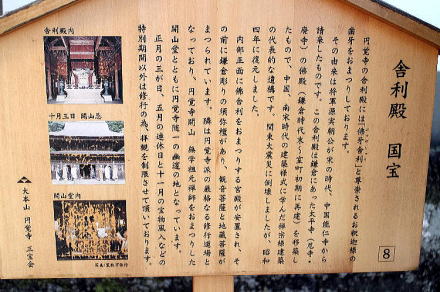 舎利殿 国宝
円覚寺の舎利殿には「佛牙舎利」と尊崇されるお釈迦様の
歯牙をおまつりしております。
その由来は将軍源実朝公が宋の時代、中国能仁寺から
請来したものです。この舎利殿は鎌倉にあった太平寺(尼寺・
廃寺)の佛殿(鎌倉時代末~室町初期に再建)を移築し
たもので、中国、南宋時代の建築様式に学んだ禅宗様建築
の代表的な遺構です。関東大震災に倒壊しましたが、昭和
四年に復元しました。
内部正面に佛舎利をおまつりする宮殿が安置され、そ
の前に鎌倉彫りの須弥壇があり、観音菩薩と地蔵菩薩が
まつられています。隣は円覚寺派の厳格なる修行道場と
なっており、円覚寺開山 無学祖元禅師をおまつりした
開山堂とともに円覚寺随一の幽邃の地となっています。
正月の三が日、五月の連休日と十一月の宝物風入などの
特別期間以外は修行の為、拝観を制限させて頂いております。
舎利殿内
十月三日 開山忌
開山堂内
大本山 円覚寺 三宝会
8